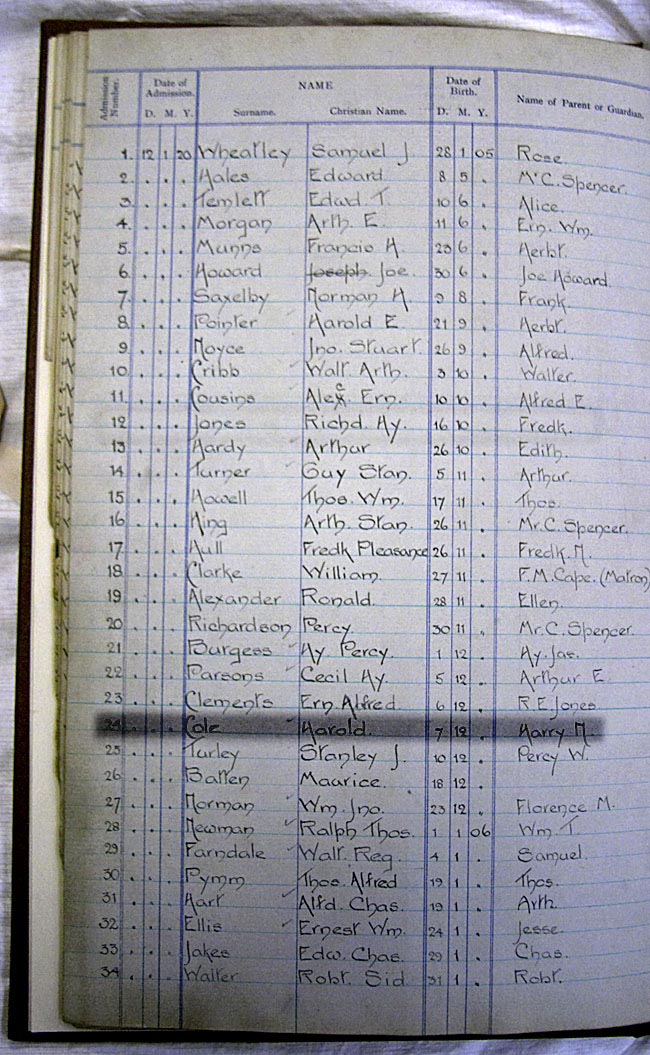 Admission Number. Date of Admission. NAME Date of Birth. Name of Parent or Guardian.
D. M. Y. Surname. Christian Name. D. M. Y.
1. 12 1 20 Wheatley Samuel J. 28 1 05 Rose
2. . . . Hales Edward 8 5 . Mr C. Spencer.
3. . . . Temlett Edwd T. 10 6 . Alice.
4. . . . Morgan Arth. E. 11 6 . Ern. Wm.
5. . . . Munns Francis H 23 6 . Herbt.
6. . . . Howard Joseph Joe. 30 6 . Joe Howard
7. . . . Saxelby Norman H. 9 8 . Frank
8. . . . Pointer Harold E. 21 9 . Herbt.
9 . . . Noyce Jno. Stuart. 26 9 . Alfred.
10. . . . Cribb Walt. Arth. 3 10 . Walter.
11. . . . Cousins Alec. Ern. 10 10 . Alfred E.
12 . . . Jones Richd. Hy. 16 10 . Fredk.
13 . . . Hardy Arthur 26 10 . Edith.
14 . . . Turner Guy Stan. 5 11 . Arthur.
15 . . . Howell Thos. Wm. 17 11 . Thos.
16 . . . King Arth. Stan. 26 11 . Mr. C. Spencer.
17. . . . Hull Fredk Pleasance 26 11 . Fredk. N.
18 . . . Clarke William. 27 11 . F. M. Cape. (Matron)
19 . . . Alexander Ronald. 28 11 . Ellen.
20 . . . Richardson Percy. 30 11 . Mr. C. Spencer.
21 . . . Burgess Hy Percy. 1 12 . Hy. Jas.
22 . . . Parsons Cecil Hy. 5 12 . Arthur E.
23 . . . Clements Ern. Alfred. 6 12 . R. E. Jones.
24 . . . Cole Harold. 7 12 . Harry N.
25 . . . Turley Stanley J. 10 12 . Percy W.
26 . . . Batten Maurice. 18 12 .
27 . . . Norman Wm. Jno. 23 12 . Florence M.
28 . . . Newman Ralph Thos. 1 1 06 Wm. T.
29 . . . Farndale Walt. Reg. 4 1 . Samuel.
30 . . . Pymm Thos. Alfred 19 1 . Thos.
31 . . . Hart Alfd. Chas. 19 1 . Arth.
32 . . . Ellis Ernest Wm. 24 1 . Jesse.
33 . . . Jakes Edw. Chas. 29 1 . Chas.
34 . . . Walter Robt. Sid. 31 1 . Robt.